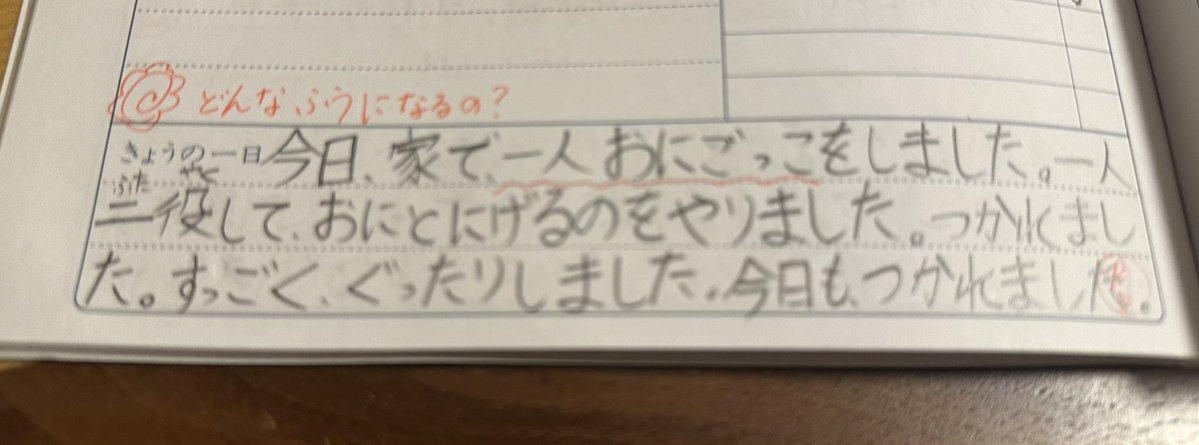 どんなふうになるの?
きょうの一日 今日、家で、一人おにごっこをしました。一人
二役して、おにとにげるのをやりました。つかれまし
た。すっごく、ぐったりしました。今日も、つかれました。